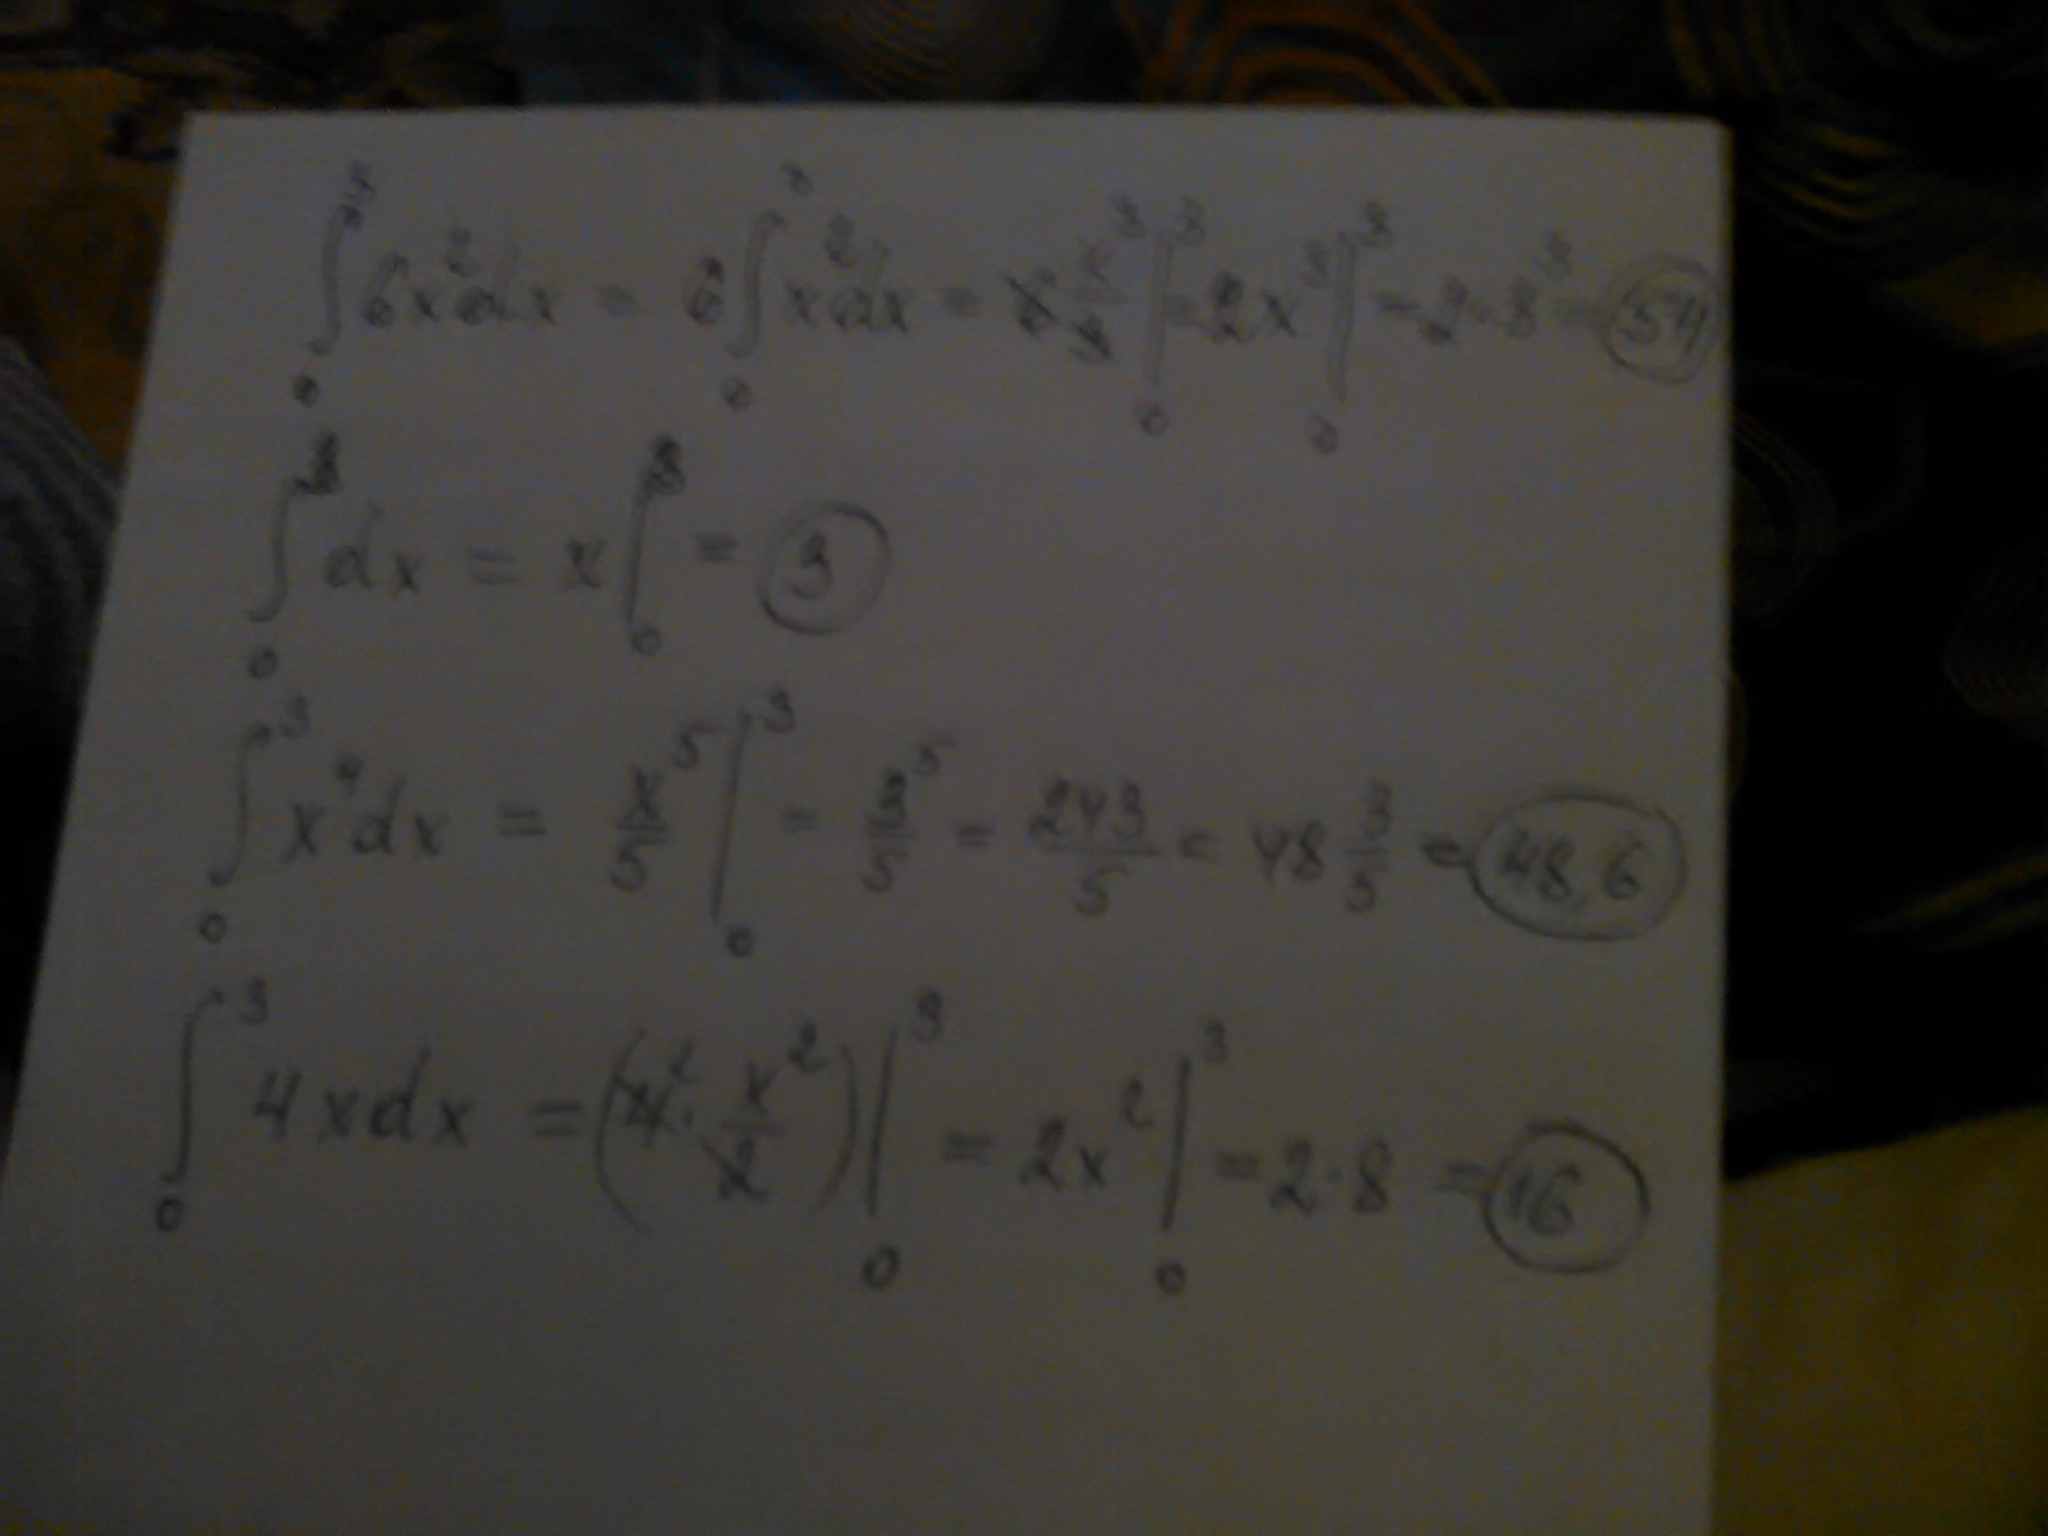 ∫₀³ 6x²dx = 6∫₀³ x²dx = 6 x³/3 |₀³ = 2x³ |₀³ = 2·3³ = 54
∫₀³ dx = x |₀³ = 3
∫₀³ x⁴dx = x⁵/5 |₀³ = 3⁵/5 = 243/5 = 48 3/5 = 48,6
∫₀³ 4xdx = (4² · x²/2) |₀³ = 2x² |₀³ = 2·8 = 16